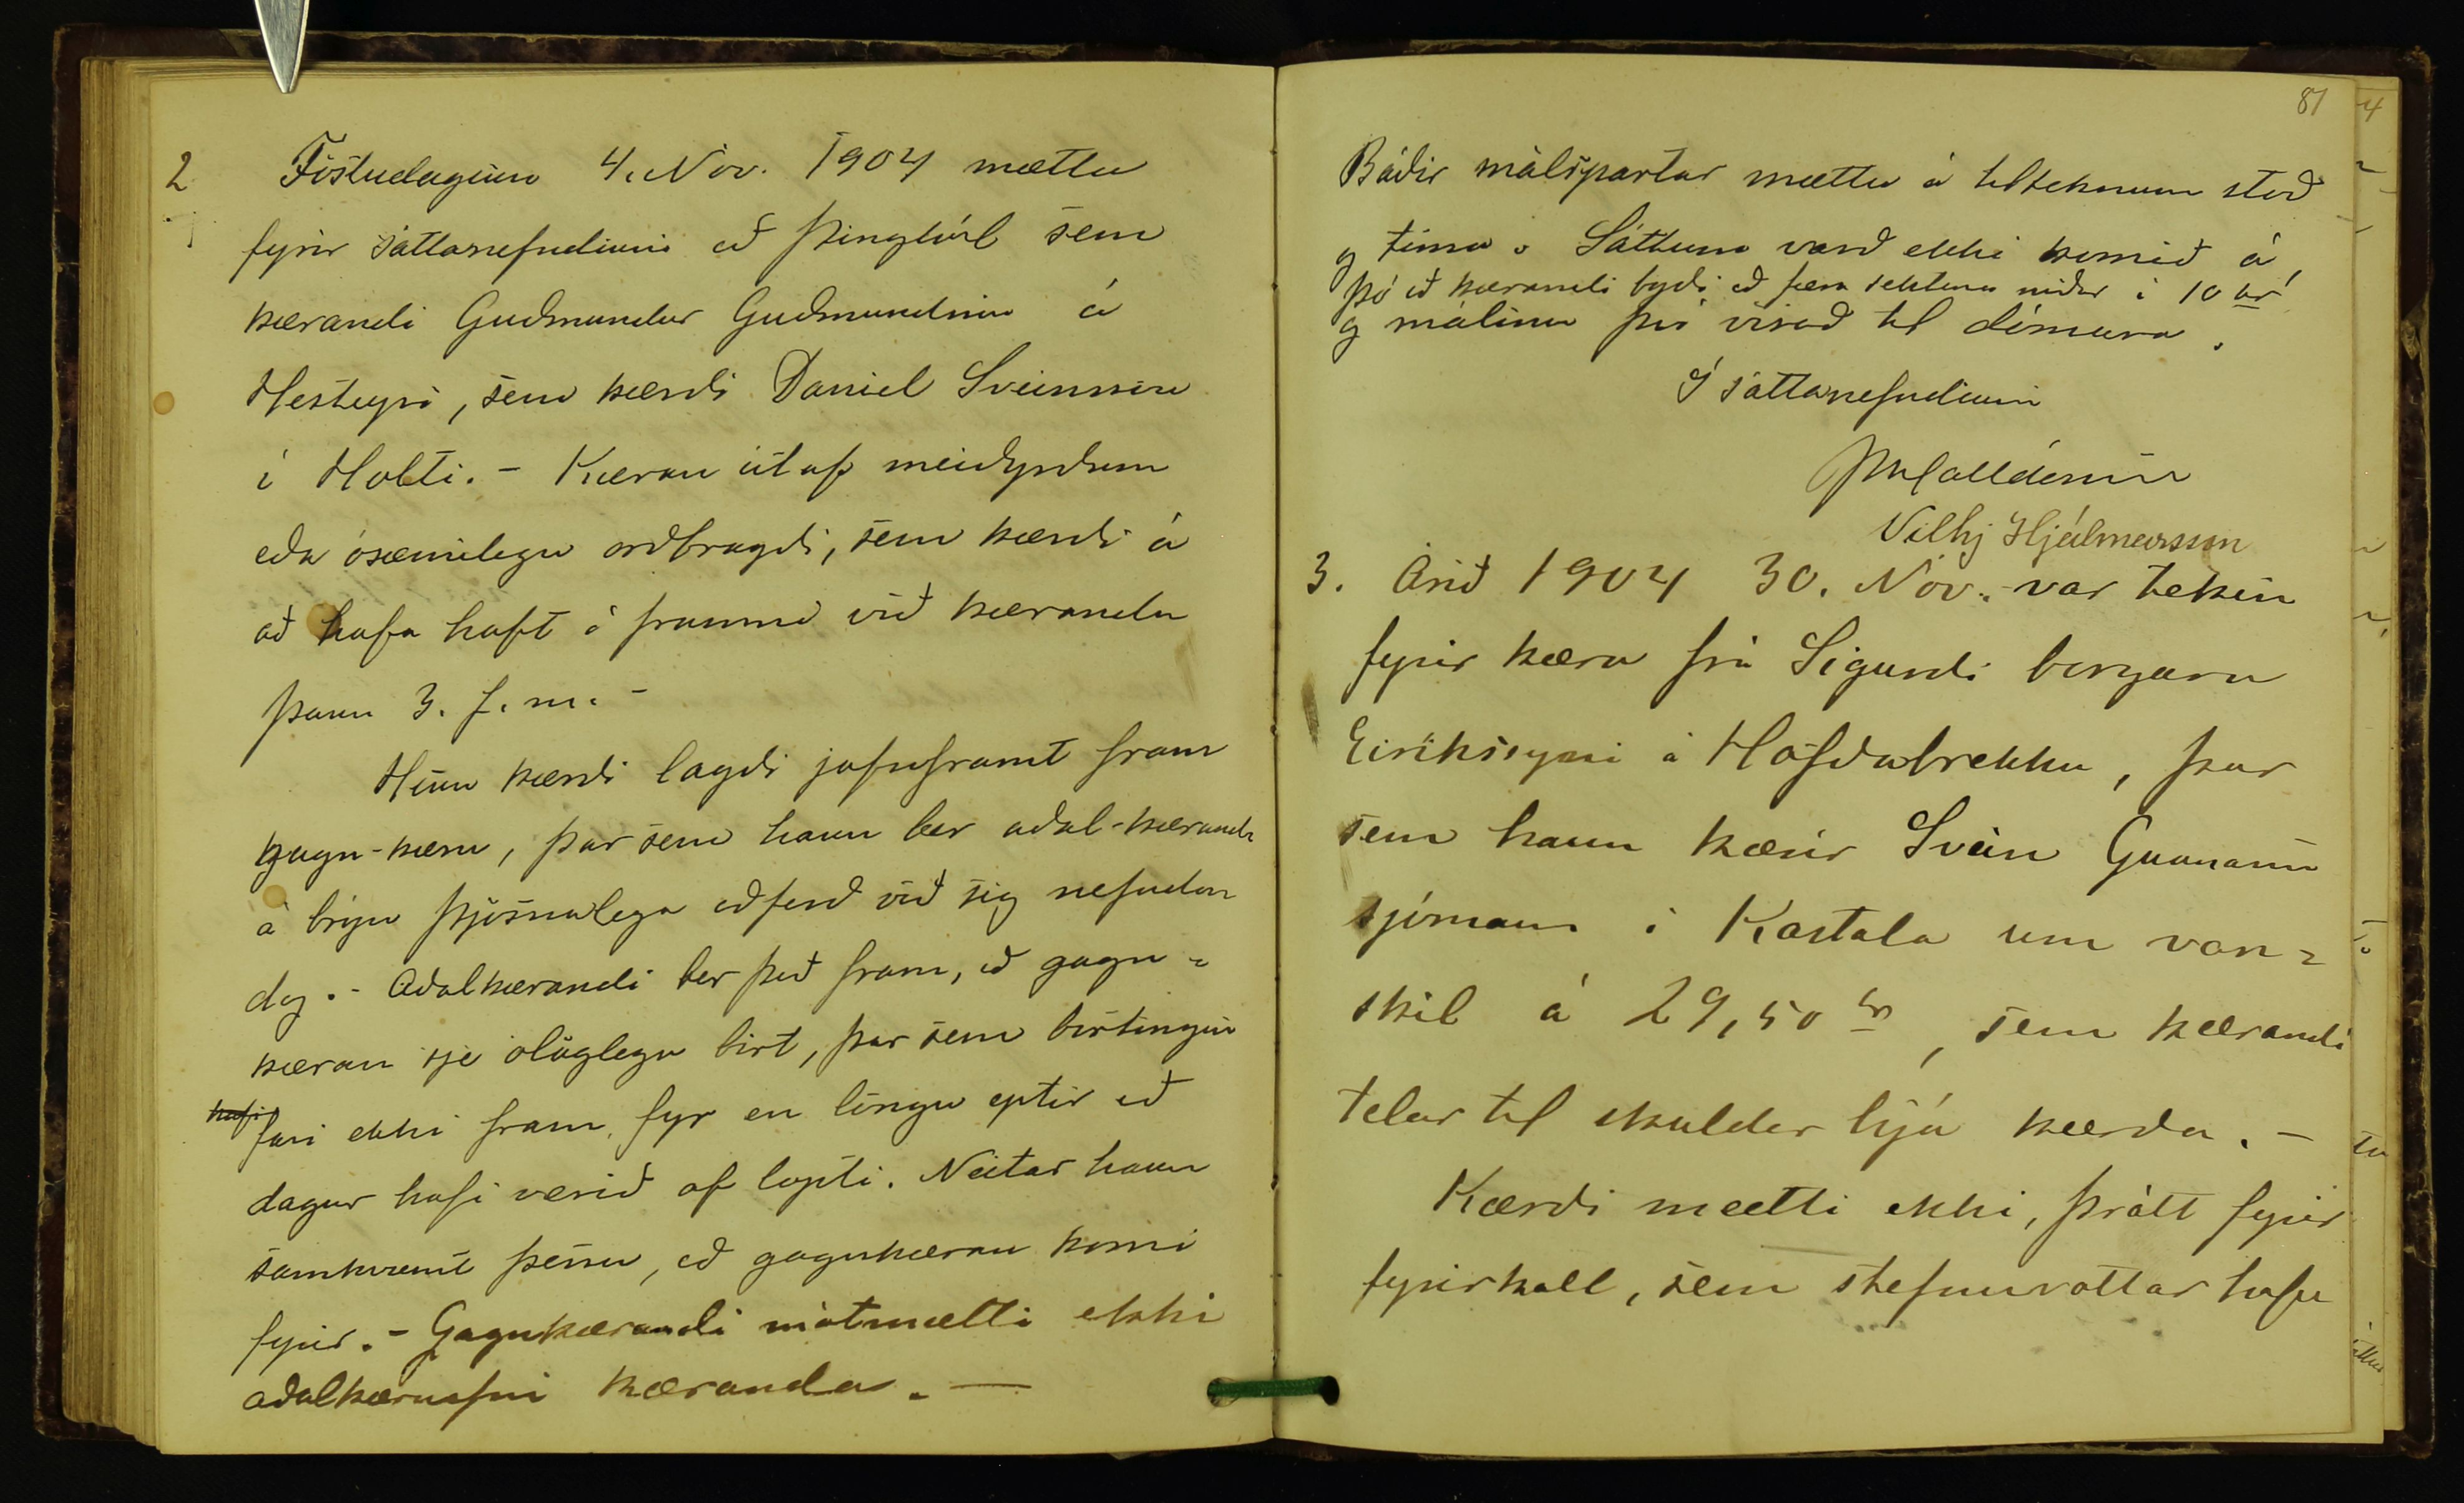 2 Föstudaginn 4. Nóv. 1904 mættu
fyrir sáttanefndinni að Þinghól sem
kærandi Guðmundur Guðmundsson á
Hesteyri, sem kærði Daniel Sveinsson
í Holti. - Kæran út af meiðyrðum
eða ósæmilegu orðbragði, sem kærði á
að hafa haft í frammi við kæranda
þann 3. f. m. -
Hinn kærði lagði jafnframt fram
gagn-kæru, þar sem hann ber aðal-kæranda
á brýn þjösnalega aðferð við sig nefndan
dag. - Aðalkærandi ber það fram, að gagn-
kæran sje ólöglega birt, þar sem birtingin
hafi fari ekki fram fyr en löngu eptir að
dagur hafi verið af lopti. Neitar hann
samkvæmt þessu, að gagnkæran komi
fyrir. - Gagnkærandi mótmælti ekki
aðalkæruefni kæranda. —
81
Báðir málspartar mættu á tilteknum stað
og tíma. Sáttum varð ekki komið á,
þó að kærandi byði að færa sektina niður í 10 kr
og málinu því vísað til dómara.
Í sáttanefndinni
Vilhj Hjálmarsson
3. Árið 1904 30. Nóv. var tekin
fyrir kæra frá Sigurði borgara
Eiríkssyni á Höfðabrekku, þar
sem hann kærir Svein Gunnarsson
sjómann í Kastala um van-
skil á 29,50 kr, sem kærandi
telur til skuldar hjá kærða. -
Kærði mætti ekki, þrátt fyrir
fyrirkall, sem stefnuvottar hafa